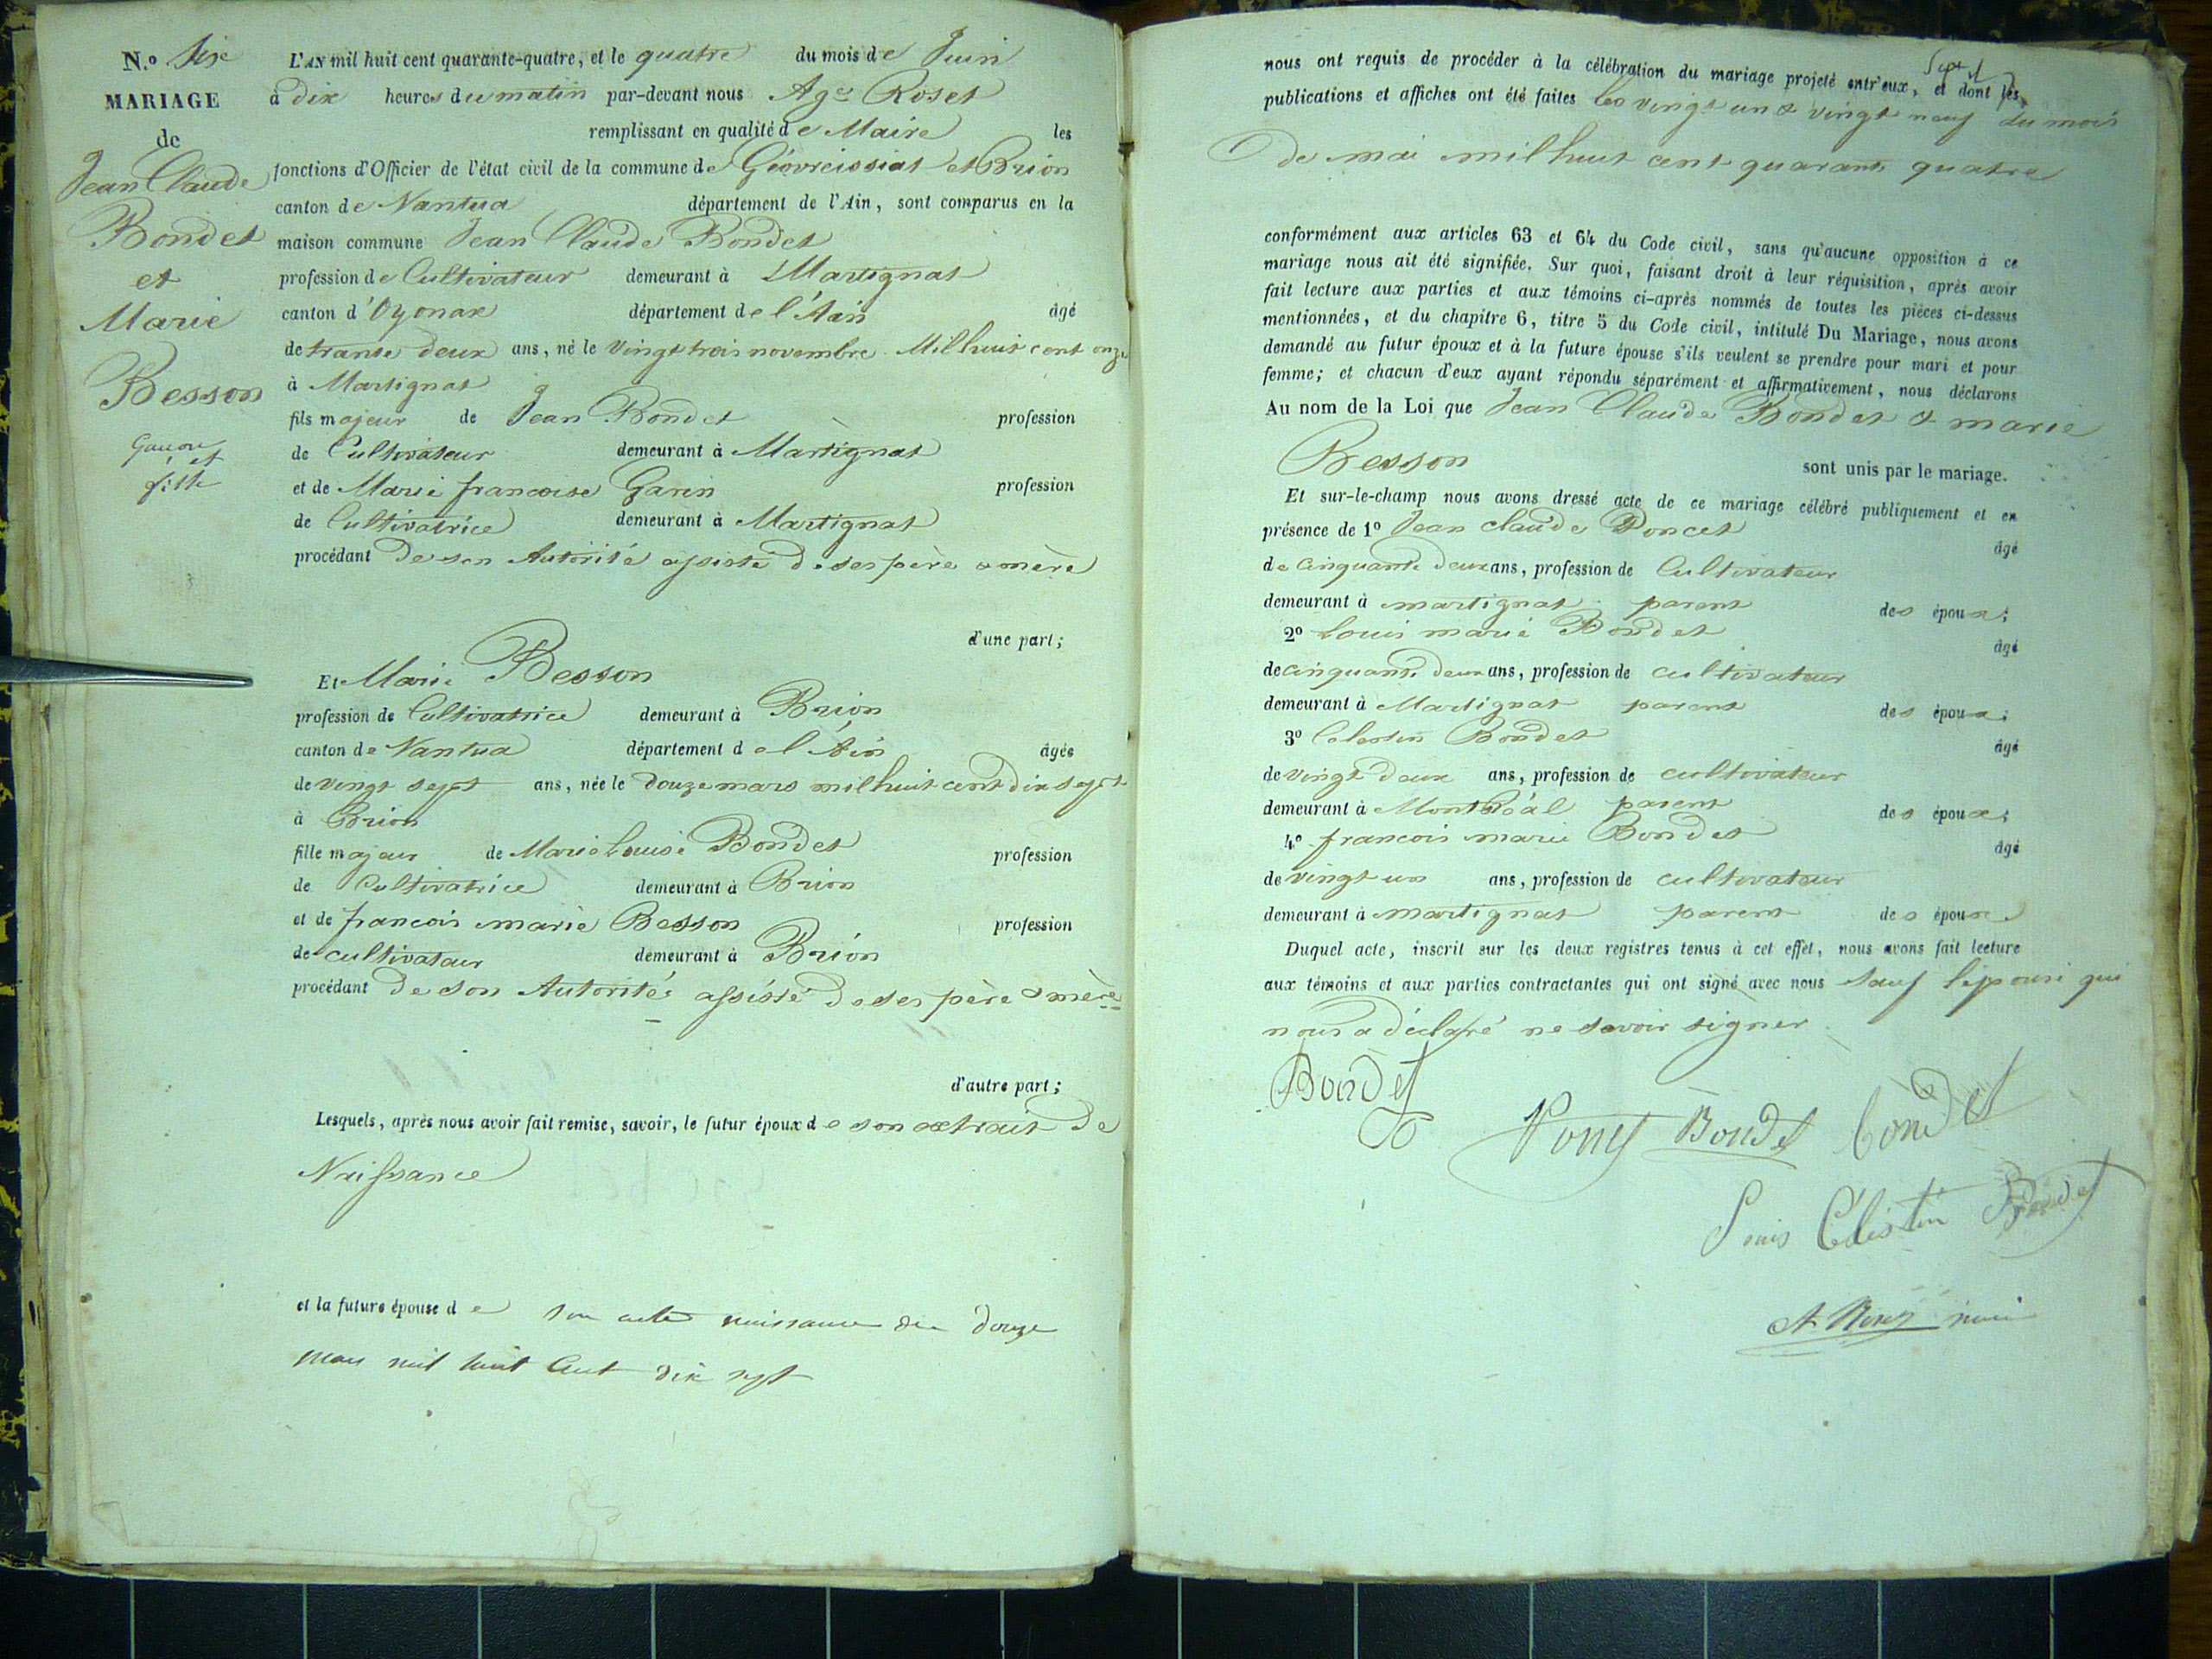 N.º Six
MARIAGE
de
Jean Claude
Bondet
et
Marie
Besson
Garçon
et
fille
L'AN mil huit cent quarante-quatre, et le quatre du mois de Juin
à dix heures du matin par-devant nous Age Roset
remplissant en qualité de Maire les
fonctions d'Officier de l'état civil de la commune de Géovreissiat et Brion
canton de Nantua département de l'Ain, sont comparus en la
maison commune Jean Claude Bondet
profession de Cultivateur demeurant à Martignat
canton d'Oyonax département de l'Ain âgé
de trante deux ans, né le vingt trois novembre Mil huit cent onze
à Martignat
fils majeur de Jean Bondet profession
de Cultivateur demeurant à Martignat
et de Marie francoise Garin profession
de Cultivatrice demeurant à Martignat
procédant de son Autorité assisté de ses père & mère
d'une part;
Et Marie Besson
profession de Cultivatrice demeurant à Brion
canton de Nantua département de l'Ain âgée
de vingt sept ans, née le douze mars mil huit cent dix sept
à Brion
fille majeur de Marie Louise Bondet profession
de Cultivatrice demeurant à Brion
et de francois marie Besson profession
de cultivateur demeurant à Brion
procédant de son Autorité assisté de ses père & mère
d'autre part;
Lesquels, après nous avoir fait remise, savoir, le futur époux de son extrait de
Naissance
et la future épouse de son acte naissance du douze
mars mil huit cent dix sept
nous ont requis de procéder à la célébration du mariage projeté entr'eux, et dont les
publications et affiches ont été faites les vingt un & vingt neuf du mois
de mai mil huit cent quarante quatre
conformément aux articles 63 et 64 du Code civil, sans qu'aucune opposition à ce
mariage nous ait été signifiée. Sur quoi, faisant droit à leur réquisition, après avoir
fait lecture aux parties et aux témoins ci-après nommés de toutes les pièces ci-dessus
mentionnées, et du chapitre 6, titre 5 du Code civil, intitulé Du Mariage, nous avons
demandé au futur époux et à la future épouse s'ils veulent se prendre pour mari et pour
femme; et chacun d'eux ayant répondu séparément et affirmativement, nous déclarons
Au nom de la Loi que Jean Claude Bondet & marie
Besson sont unis par le mariage.
Et sur-le-champ nous avons dressé acte de ce mariage célébré publiquement et en
présence de 1º Jean claude Poncet âgé
de cinquante deux ans, profession de Cultivateur
demeurant à martignat parent des époux;
2º Louis marie Bondet âgé
de cinquante deux ans, profession de cultivateur
demeurant à Martignat parent des époux;
3º Celestin Bondet âgé
de vingt deux ans, profession de cultivateur
demeurant à Montréal parent des époux;
4º francois marie Bondet âgé
de vingt un ans, profession de cultivateur
demeurant à martignat parent des époux
Duquel acte, inscrit sur les deux registres tenus à cet effet, nous avons fait lecture
aux témoins et aux parties contractantes qui ont signé avec nous sauf l'épouse qui
nous a déclaré ne savoir signer
Bondet
Poncet Bondet Bondet
Louis Célestin Bondet
A Roset maire